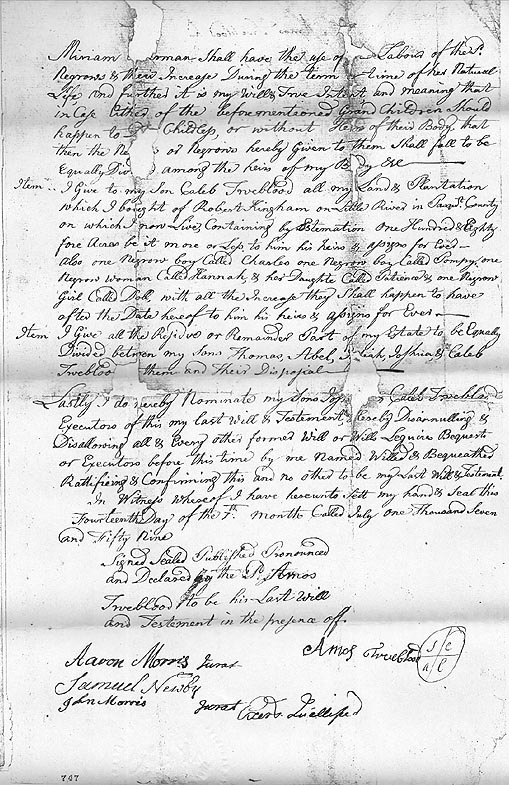 Miriam erman Shall have the use of Labour of the sd.
Negroes & their Increase During the term or time of her Natural
Life And further it is my Will & True Intent and meaning that
in Case Either of the beforementioned Grand Children Should
happen to Childless, or without Heirs of their Body, that
then the Ne or Negrows hereby Given to them Shall fall to be
Equally Div among the heirs of my Body &c
Item .. I Give to my Son Caleb Trueblood all my Land & Plantation
which I bought of Robert Hingham on Little River in Pasqk. County
on which I now Live, Containing by Estemation One Hundred & Eighty
fore Acres be it more or Less to him his heirs & assigns for Ever
also one Negrow boy Called Charles one Negrow boy Called Pompy, one
Negrow woman Called Hannah, & her Daughter Called Patience & one Negrow
Girl Called Doll, with all the Increase they Shall happen to have
after the Date hereof to him his heirs & assigns for Ever
Item I Give all the Residue or Remainder Part of my Estate to be Equally
Divided between my Sons Thomas, Abel, iah, Joshua & Caleb
Trueblood them and their Disposial
Lastly I do hereby Nominate my Sons Caleb Trueblood
Executors of this my last Will & Testement hereby Disannulling &
Disallowing all & Every other formed Will or Wills Leguices Bequests
or Executors before this time by me Named Willed & Bequeathed
Rattifieing & Confirming this and no other to be my Last Will & Testement
In Witness whereof I have hereunto Sett my hand & Seal this
Fourteenth Day of the 7th. month Called July one Thousand Seven
and Fifty Nine
Signed Sealed Published Pronounced
and Declared by the Sd. Amos
Trueblood to be his Last Will
and Testement in the presence off
Amos Trueblood Seal
Aaron Morris Jurat
Samuel Newby
John Morris Jurat
747